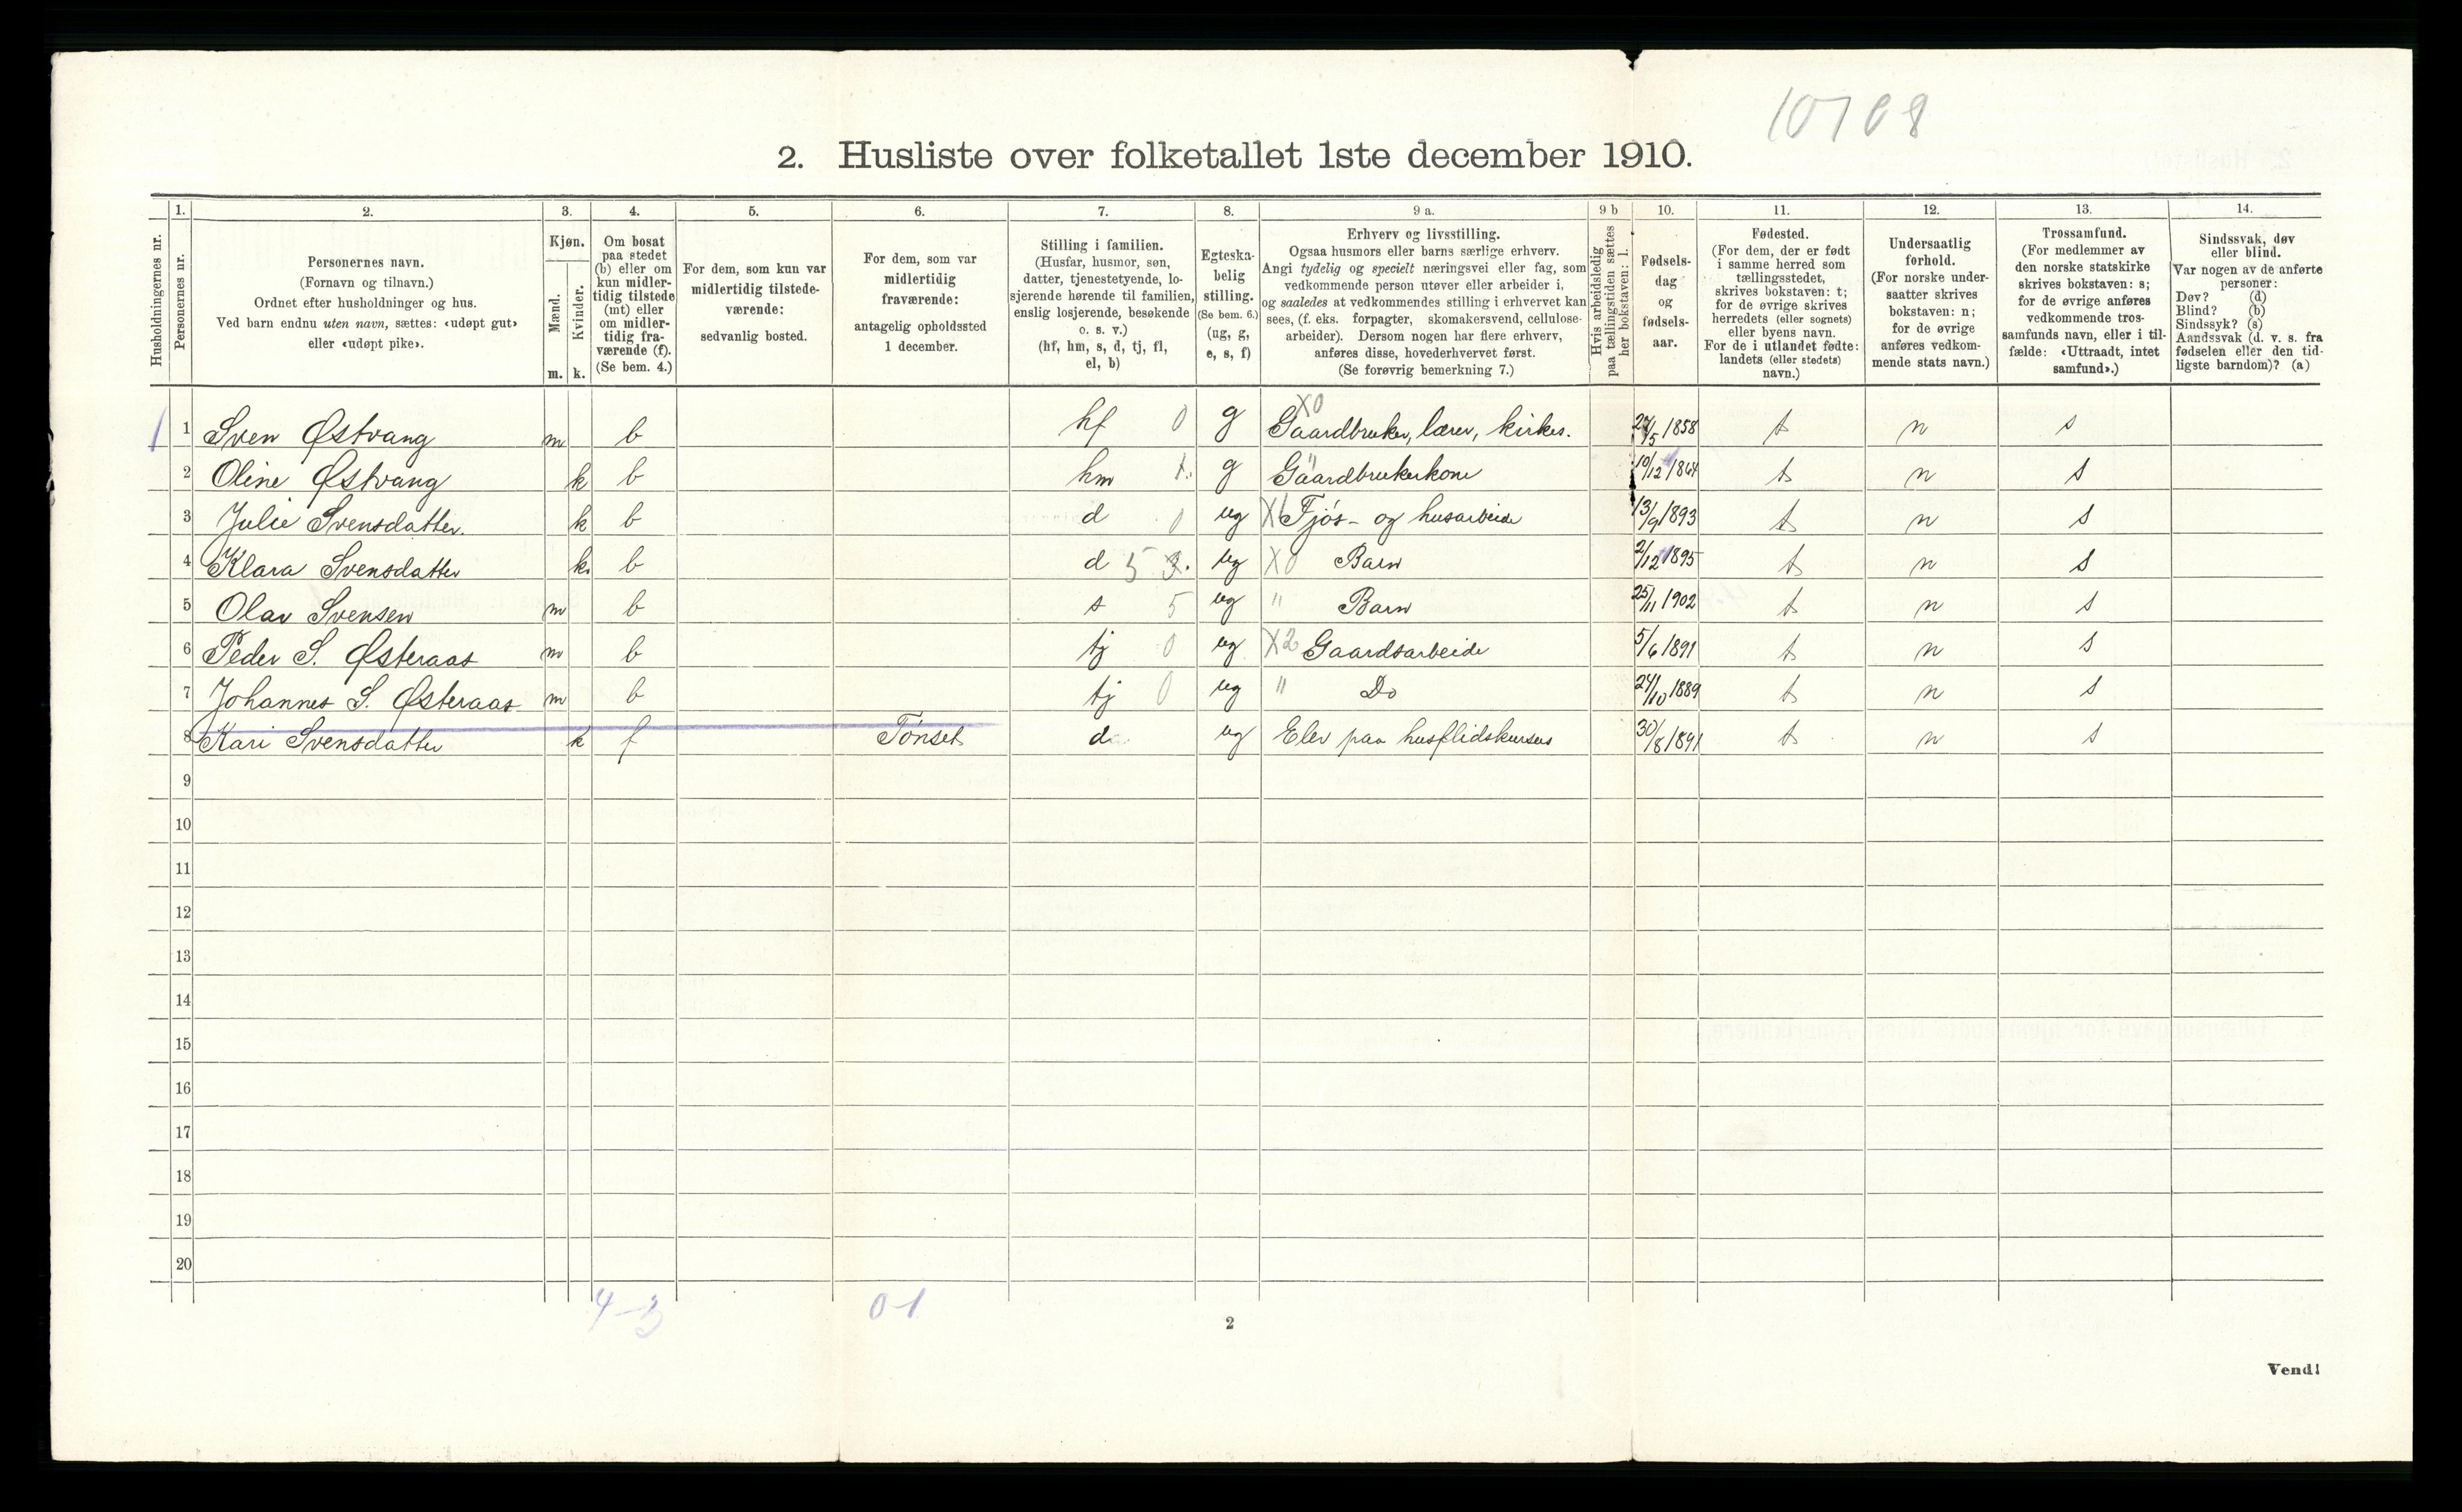 10708
2. Husliste over folketallet 1ste december 1910.
1. 2. 3. 4. 5. 6. 7. 8. 9 a. 9 b 10. 11. 12. 13. 14.
Husholdningernes nr.
Personernes nr.
Personernes navn.
(Fornavn og tilnavn.)
Ordnet efter husholdninger og hus.
Ved barn endnu uten navn, sættes: «udøpt gut»
eller «udøpt pike».
Kjøn.
Mænd.
Kvinder.
m. k.
Om bosat
paa stedet
(b) eller om
kun midler-
tidig tilstede
(mt) eller
om midler-
tidig fra-
værende (f).
(Se bem. 4.)
For dem, som kun var
midlertidig tilstede-
værende:
sedvanlig bosted.
For dem, som var
midlertidig
fraværende:
antagelig opholdssted
1 december.
Stilling i familien.
(Husfar, husmor, søn,
datter, tjenestetyende, lo-
sjerende hørende til familien,
enslig losjerende, besøkende
o. s. v.)
(hf, hm, s, d, tj, fl,
el, b)
Egteska-
belig
stilling.
(Se bem. 6.)
(ug, g,
e, s, f)
Erhverv og livsstilling.
Ogsaa husmors eller barns særlige erhverv.
Angi tydelig og specielt næringsvei eller fag, som
vedkommende person utøver eller arbeider i,
og saaledes at vedkommendes stilling i erhvervet kan
sees, (f. eks. forpagter, skomakersvend, cellulose-
arbeider). Dersom nogen har flere erhverv,
anføres disse, hovederhvervet først.
(Se forøvrig bemerkning 7.)
Hvis arbeidsledig
paa tællingstiden sættes
her bokstaven: l.
Fødsels-
dag
og
fødsels-
aar.
Fødested.
(For dem, der er født
i samme herred som
tællingsstedet,
skrives bokstaven: t;
for de øvrige skrives
herredets (eller sognets)
eller byens navn.
For de i utlandet fødte:
landets (eller stedets)
navn.)
Undersaatlig
forhold.
(For norske under-
saatter skrives
bokstaven: n;
for de øvrige
anføres vedkom-
mende stats navn.)
Trossamfund.
(For medlemmer av
den norske statskirke
skrives bokstaven: s;
for de øvrige anføres
vedkommende tros-
samfunds navn, eller i til-
fælde: «Uttraadt, intet
samfund».)
Sindssvak, døv
eller blind.
Var nogen av de anførte
personer:
Døv? (d)
Blind? (b)
Sindssyk? (s)
Aandssvak (d. v. s. fra
fødselen eller den tid-
ligste barndom)? (a)
1 1 Sven Østvang m b hf 0 g X0 Gaardbruker, lærer, kirkes. 27/5 1858 t n s
2 Oline Østvang k b hm 1. g " Gaardbrukerkone 10/12 1864 t n s
3 Julie Svensdatter. k b d 0 ug X1 Fjøs- og husarbeide 13/9 1893 t n s
4 Klara Svensdatter k. b d 5 3. ug X0 Barn 2/12 1895 t n s
5 Olav Svensen m b s 5 ug " Barn 25/11 1902 t n s
6 Peder S. Østeraas m b tj 0 ug X2 Gaardsarbeide 5/6 1891 t n s
7 Johannes S. Østeraas m b tj 0 ug " Do 24/10 1889 t n s
8 Kari Svensdatter k f Tønset d ug Elev paa husflidskursus 30/8 1891 t n s
9
10
11
12
13
14
15
16
17
18
19
20
4-3 0-1
2
Vend!